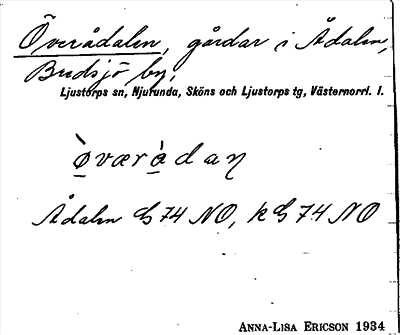 Överådalen, gårdar i Ådalen,
Bredsjö by,
Ljustorps sn, Njurunda, Sköns och Ljustorps tg, Västernorrl. l.
ø̀væràdaɳ
Ådalen G 74 NO, k G 74 NO
ANNA-LISA ERICSON 1934